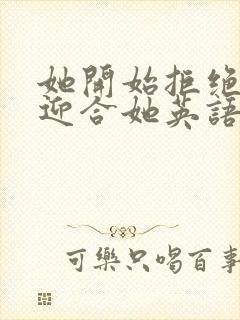 她開始拒絕
迎合她英語
可樂只喝百事